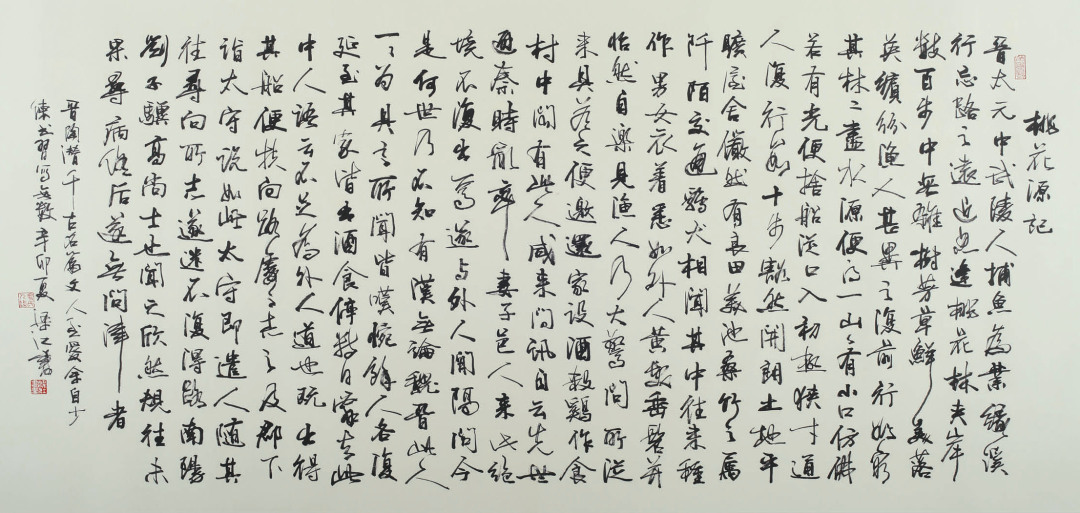 桃花源記
晉太元中武陵人捕魚為業緣溪
行忘路之遠近忽逢桃花林夾岸
數百步中無雜樹芳草鮮美落
英繽紛漁人甚異之復前行欲窮
其林二盡水源便得一山山有小口仿佛
若有光便捨船從口入初極狹才通
人復行數十步豁然開朗土地平
曠屋舍儼然有良田美池桑竹之屬
阡陌交通鷄犬相聞其中往來種
作男女衣着悉如外人黃髮垂髫并
怡然自樂見漁人乃大驚問所從
來具答之便邀還家設酒殺鷄作食
村中聞有此人咸來問訊自云先世
避秦時亂率妻子邑人來此絕
境不復出焉遂与外人間隔問今
是何世乃不知有漢無論魏晉此人
一一為具言所聞皆嘆惋餘人各復
延至其家皆出酒食停數日辭去此
中人語云不足為外人道也既出得
其船便扶向路處處志之及郡下
詣太守說如此太守即遣人隨其
往尋向所志遂迷不復得路南陽
劉子驥高尚士也聞之欣然規往未
果尋病終后遂無問津者
晉陶潛千古名篇文人至愛余自少
陳書習寫無數辛卯夏梁江書